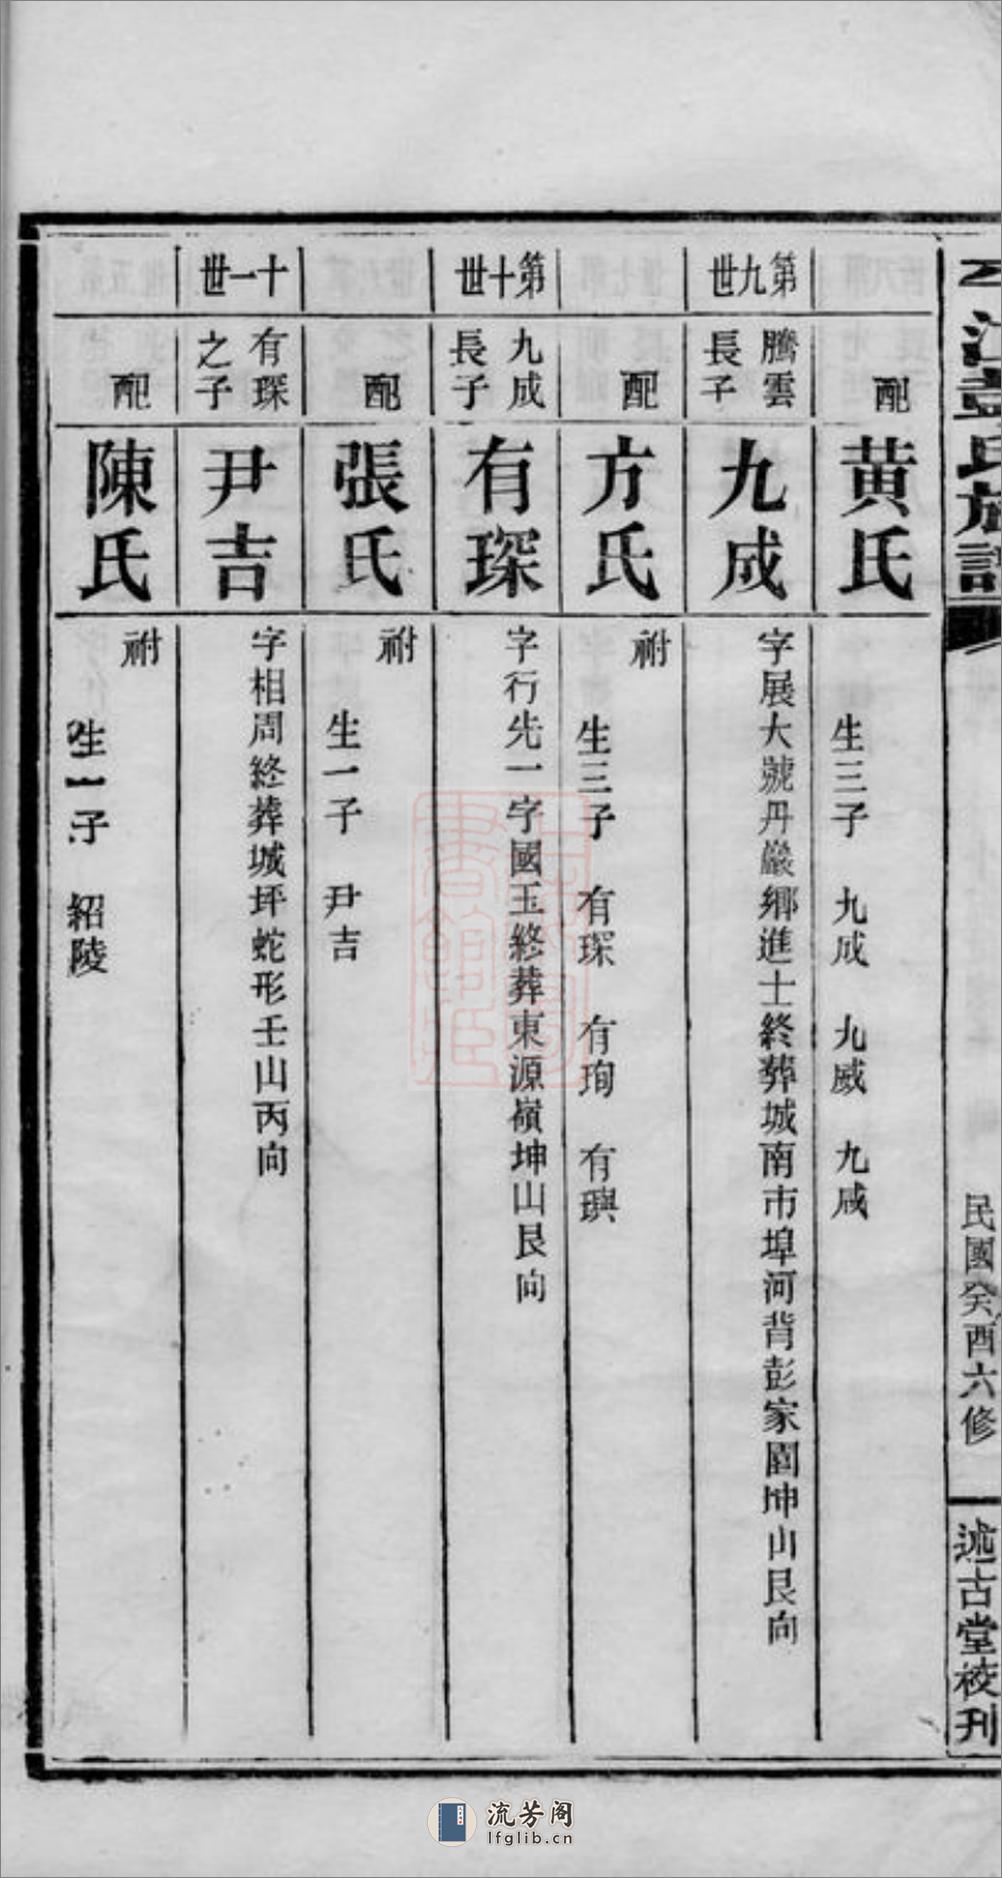 江彭氏族譜
民國癸酉六修
述古堂校刊
配
黃氏
生三子 九成 九威 九咸
第九世
騰雲長子
九成
字展大號丹巖鄉進士終葬城南市埠河背彭家園坤山艮向
配
方氏
祔
生三子 有琛 有珣 有璵
第十世
九成長子
有琛
字行先一字國玉終葬東源嶺坤山艮向
配
張氏
祔
生一子 尹吉
十一世
有琛之子
尹吉
字相周終葬城坪蛇形壬山丙向
配
陳氏
祔
生一子 紹陵
流芳阁
lfglib.cn